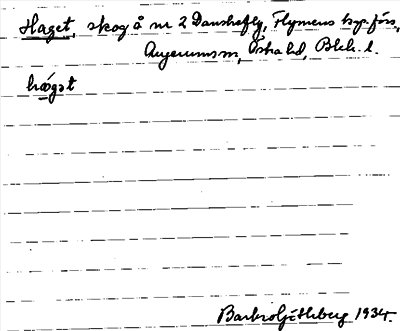 Haget, skog å nr 2 Danskafly, Flymens kap.förs.,
Augerums sn, Östra hd, Blek. l.
hǽgət
Barbro Götheberg 1934.